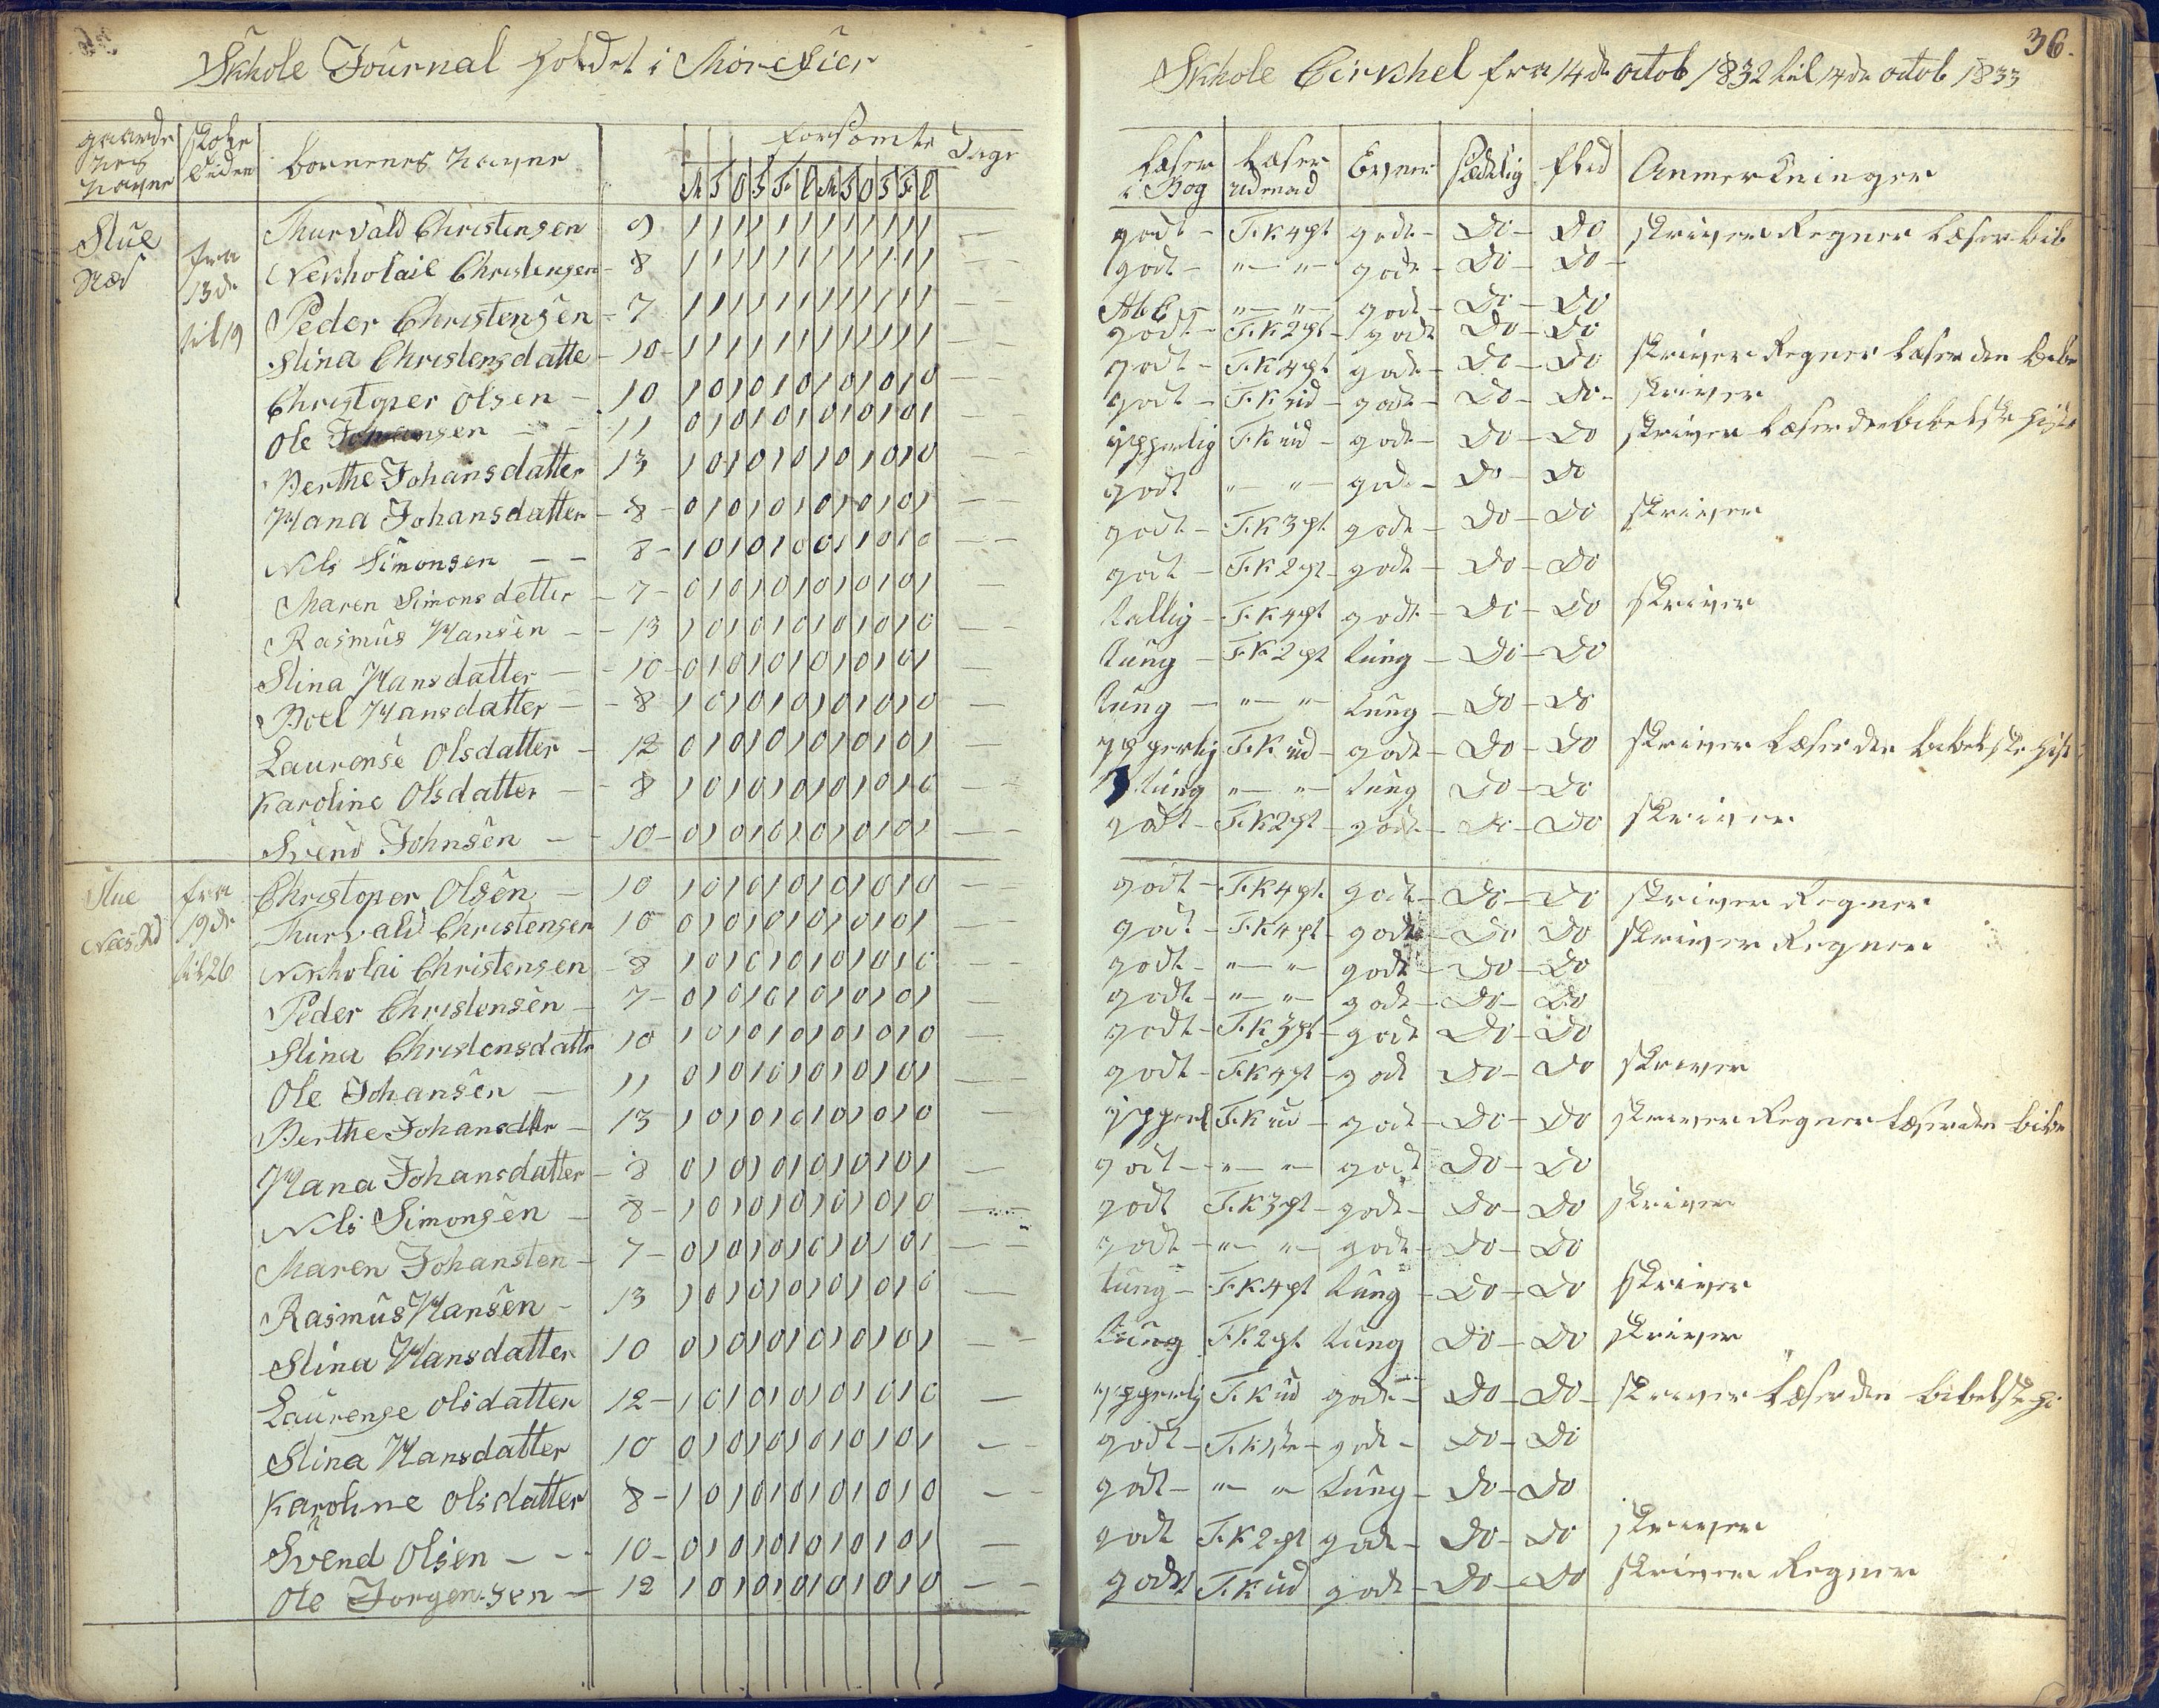 Skhole Journal holdet i Morefier
gaarde nes navne | skole tiden | börnenes navne | forsömte Dage
M T O T F L M T O T F L
Stue Næs fra 13de til 19
Thurvald Christensen 9 1 1 1 1 1 1 1 1 1 1 1 1 —
Nekholaie Christensen - 8 1 1 1 1 1 1 1 1 1 1 1 1 —
Peder Christensen - 7 1 1 1 1 1 1 1 1 1 1 1 1 —
Stina Christensdatte - 10 - 1 1 1 1 1 1 1 1 1 1 1 1 —
Christoper Olsen - 10 1 0 1 0 1 0 1 0 1 0 1 0 —
Ole Johansen - 11 0 1 0 1 0 1 0 1 0 1 0 1 —
Berthe Johansdatter 13 1 0 1 0 1 0 1 0 1 0 1 0 —
Hana Johansdatter - 8 - 0 1 0 1 0 1 0 1 0 1 0 1 —
Nils Simonsen - - 8 - 1 0 1 0 1 0 0 1 1 0 1 0 —
Maren Simonsdetter - 7 - 0 1 0 1 0 1 0 1 0 1 0 1 —
Rasmus Hansen - - 13 1 0 1 0 1 0 1 0 1 0 1 0 —
Stina Hansdatter - - 10 - 0 1 0 1 0 1 0 1 0 1 0 1 —
Boel Hansdatter - - 8 1 0 1 0 1 0 1 0 1 0 1 0 —
Laurense Olsdatter - 12 0 1 0 1 0 1 0 1 0 1 0 1 —
Karoline Olsdatter - - 8 1 0 1 0 1 0 1 0 1 0 1 0 —
Svend Johnsen - - 10 - 0 1 0 1 0 1 0 1 0 1 0 1 —
Stue Næs fra 19de til 26
Christoper Olsen - 10 1 0 1 0 1 0 1 0 1 0 1 0 —
Thurvald Christensen 10 0 1 0 1 0 1 0 1 0 1 0 1 —
Nikholai Christensen - 8 1 0 1 0 1 0 1 0 1 0 1 0 —
Peder Christensen - 7 - 0 1 0 1 0 1 0 1 0 1 0 1 —
Stina Christensdatte 10 1 0 1 0 1 0 1 0 1 0 1 0 —
Ole Johansen - 11 0 1 0 1 0 1 0 1 0 1 0 1 —
Berthe Johansdttr - 13 1 0 1 0 1 0 1 0 1 0 1 0 —
Hana Johansdatter - 8 0 1 0 1 0 1 0 1 0 1 0 1 —
Nils Simonsen - 8 - 1 0 1 0 1 0 1 0 1 0 1 0 —
Maren Johansten - 7 - 0 1 0 1 0 1 0 1 0 1 0 1 —
Rasmus Hansen - 13 1 0 1 0 1 0 1 0 1 0 1 0 —
Stina Hansdatter 10 0 1 0 1 0 1 0 1 0 1 0 1 —
Laurense Olsdatter 12 - 1 0 1 0 1 0 1 0 1 0 1 0 —
Stina Hansdatter 10 0 1 0 1 0 1 0 1 0 1 0 1 —
Karoline Olsdatter 8 - 1 0 1 0 1 0 1 0 1 0 1 0 —
Svend Olsen - - - 10 - 0 1 0 1 0 1 0 1 0 1 0 1 —
Ole Jorgensen - 12 1 0 1 0 1 0 1 0 1 0 1 0 —
36.
Skhole Cirkhel fra 14de octob 1832 til 14de octob 1833
læser i Bog | læser udenad | Evner | sædelig | flid | Anmerkninger
godt - T.K 4pt godt - Do - Do skriver Regner læser bib
godt - " - " - godt - Do - Do -
Abc - " - " - godt - Do - Do
godt - T.K 2pt - godt Do - Do
godt - T.K 4pt godt - Do - Do skriver Regner læser den bibe
godt - T.K ud - godt - Do - Do - skriver
ypperlig T.K ud - godt - Do - Do skriver læser den bibelske histo
godt " - " - godt - Do - Do
godt - T.K 3pt godt - Do - Do skriver
godt - T.K 2pt - godt - Do - Do
tallig - T.K 4pt godt - Do - Do skriver
tung - T.K 2pt tung - Do - Do
tung - " - " tung - Do - Do
ypperlig T.K ud - godt - Do - Do skriver læser den bibelske hist
tung " - " - tung Do - Do
godt - T.K 2pt - godt - Do - Do skriver
godt - T.K 4pt godt - Do - Do skriver Regner
godt - T.K 4pt - godt - Do Do skriver Regner
godt - " - " - godt - Do - Do
godt - " - " - godt - Do - Do
godt - T.K 3pt - godt Do - Do
godt - T.K 4pt - godt Do - Do skriver
ypperl T.K ud - godt - Do - Do skriver Regner læser den bibe
godt - " - " - godt Do - Do
godt T.K 3pt - godt - Do - Do skriver
godt - " - " - godt - Do - Do
tung - T.K 4pt tung - Do - Do skriver
tung T.K 2pt tung Do - Do skriver
ypperlig T.K ud godt - Do - Do - skriver læser den bibelske hi
godt - godt - Do - Do
godt - " - " - tung - Do - Do
godt T.K 2pt godt - Do - Do skriver
godt T.K ud godt - Do - Do skriver Regner